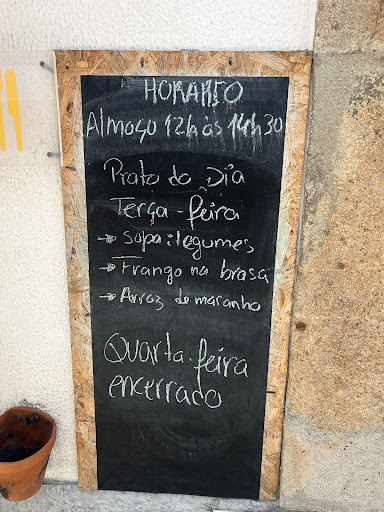 HORARIO
Almoço 12h às 14h30
Prato do Dia
Terça-feira
→ Sopa: legumes
→ Frango na brasa
→ Arroz de maranho
Quarta-feira
encerrado